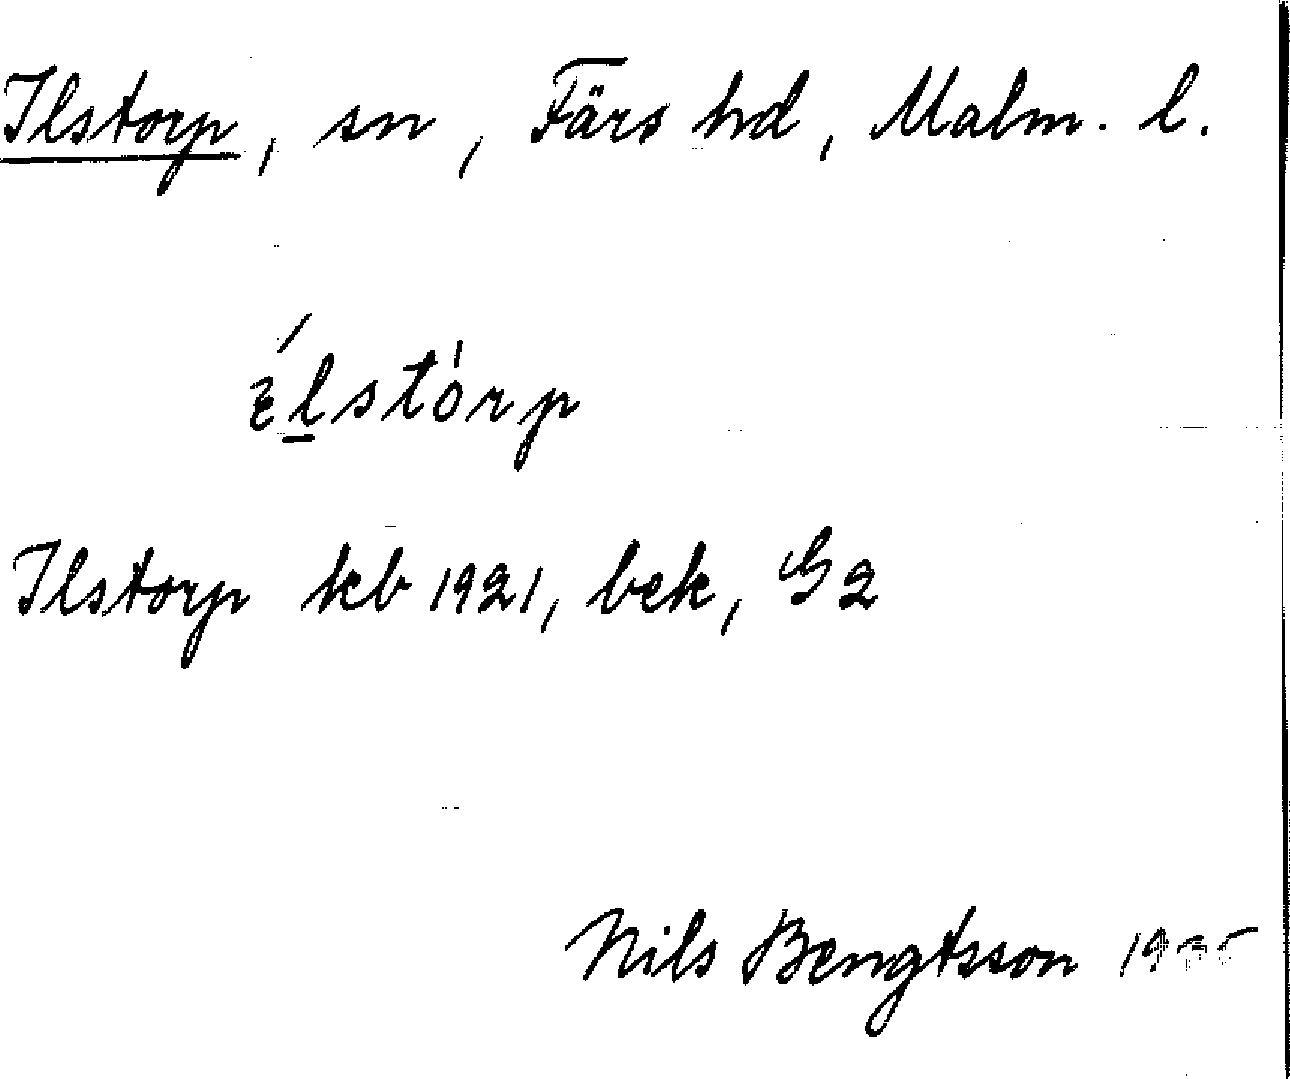 Ilstorp, sn, Färs hd, Malm. l.
élstórp
Ilstorp kb 1921, bek, G2
Nils Bengtsson 1935